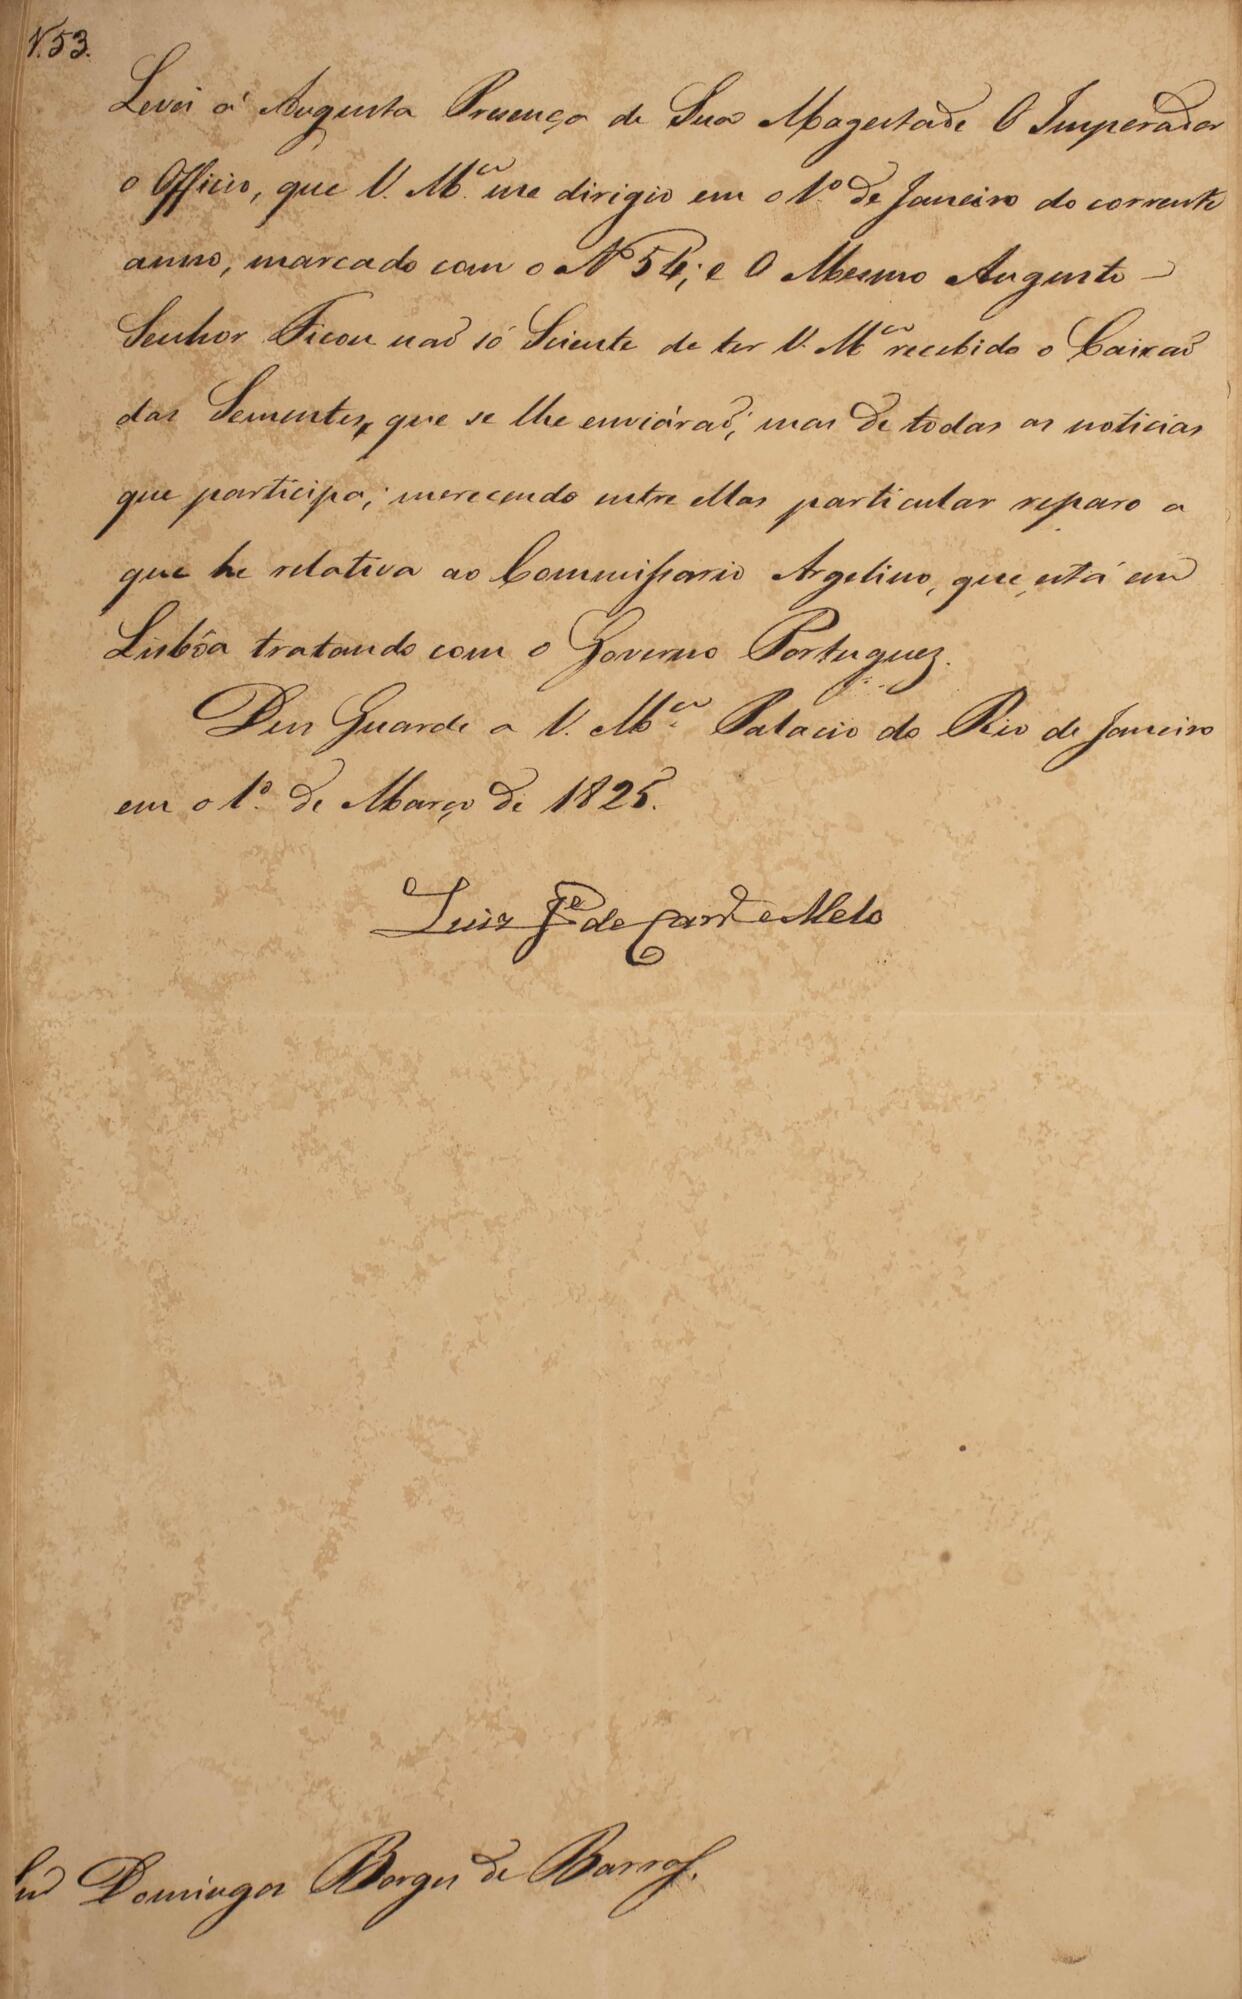 N. 53.
Levei á Augusta Presença de Sua Magestade O Imperador
o Officio, que V. M.ce me dirigio em o 1.º de Janeiro do corrente
anno, marcado com o Nº 54; e O Mesmo Augusto
Senhor Ficou naõ só Sciente de ter V. M.ce recebido o Caixaõ
das Sementes, que se lhe enviáraõ; mas de todas as noticias
que participa; merecendo entre ellas particular reparo a
que he relativa ao Commissario Argelino, que está em
Lisbôa tratando com o Governo Portuguez.
Deus Guarde a V. M.ce Palacio do Rio de Janeiro
em o 1.º de Março de 1825.
Luiz Je de Carv.º e Melo
Snr Domingos Borges de Barros.